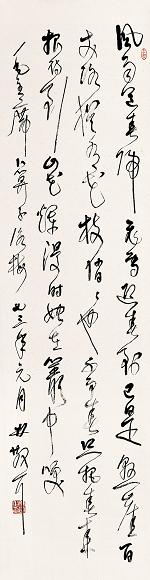 風雨送春歸飛雪迎春到已是懸崖百
丈冰猶有花枝俏々也不争春只把春来
报待到山花爛漫时她在叢中笑
毛主席卜算子咏梅九三年元月